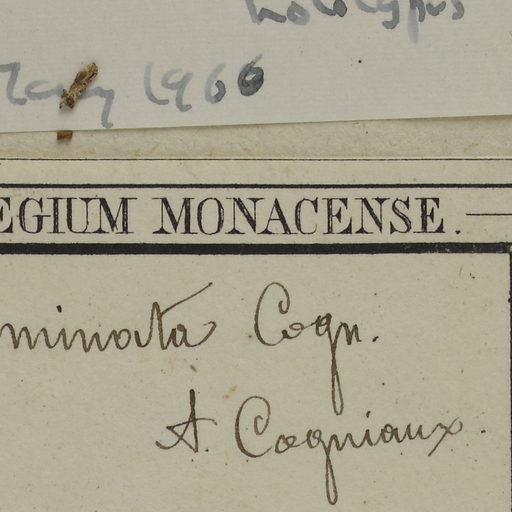 holotypus
May 1966
EGIUM MONACENSE.
minata Cogn.
A. Cogniaux.